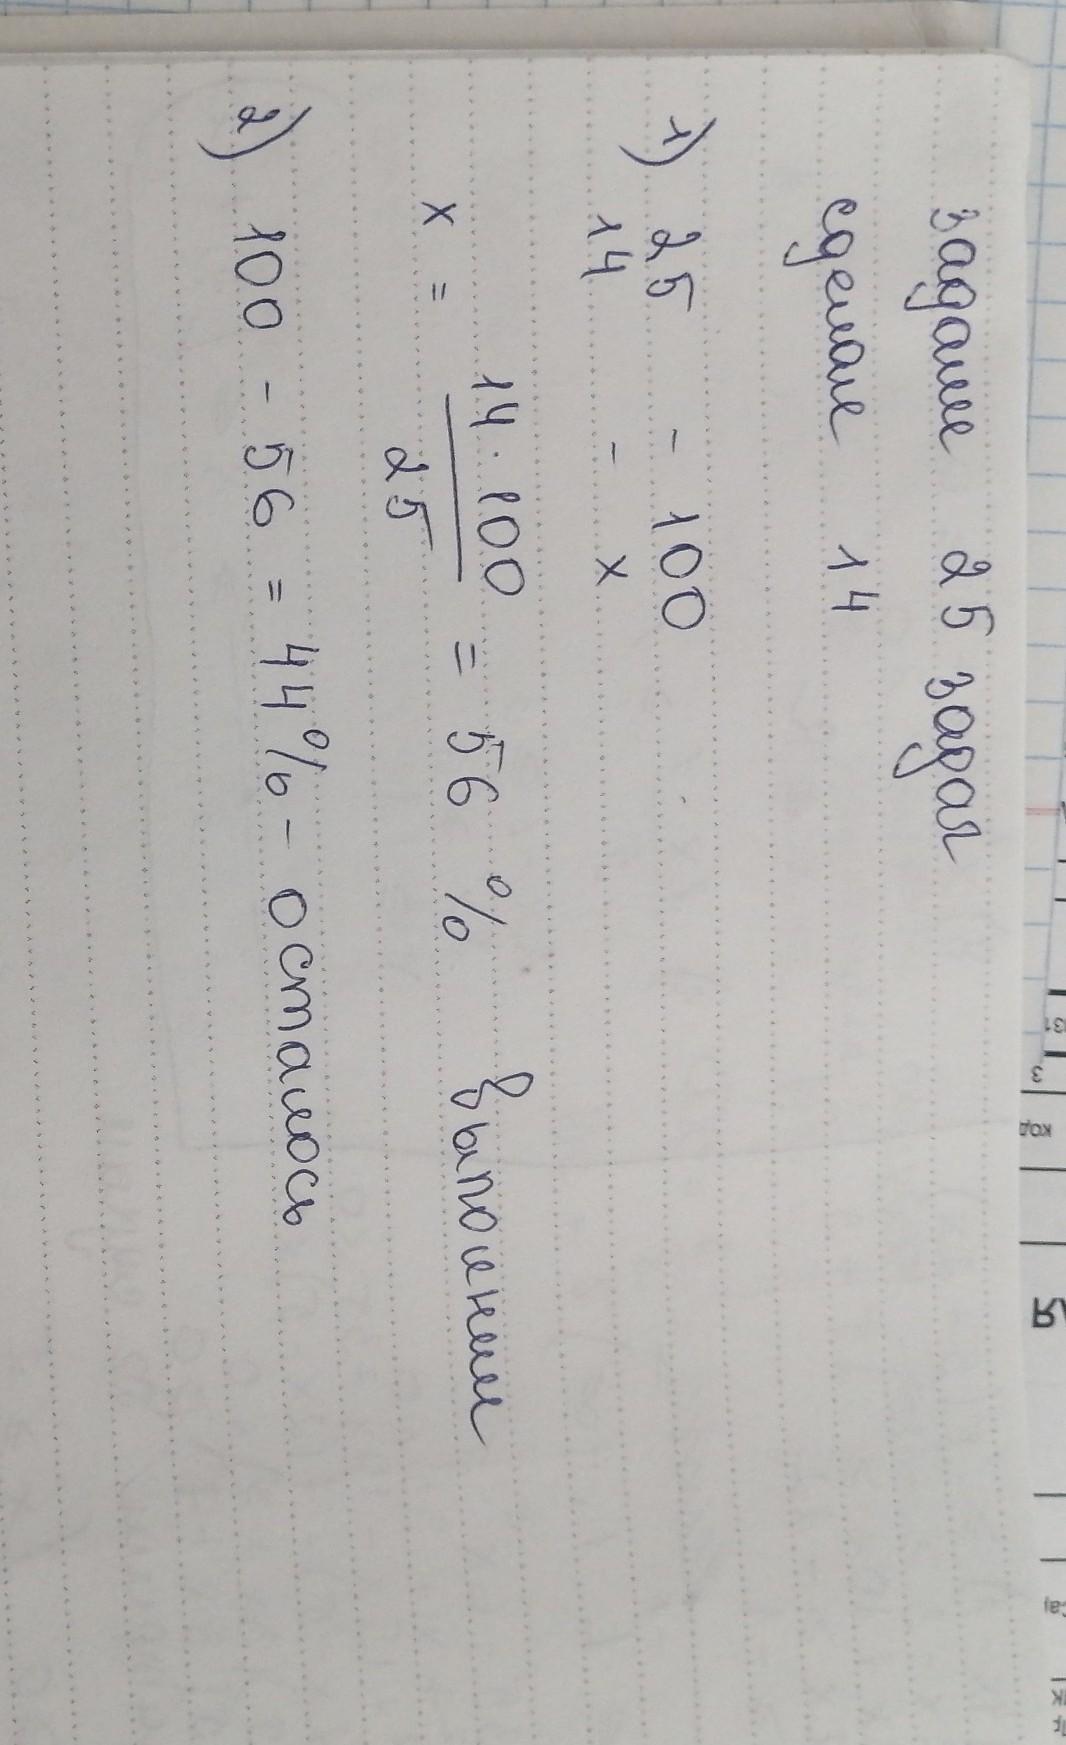 задали 25 задач
сделали 14
1) 25 - 100
14 - x
x = 14 · 100 / 25 = 56 % выполнили
2) 100 - 56 = 44% - осталось
3
код